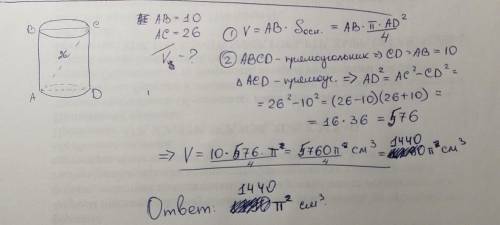 B C
26
A D
AB = 10
AC = 26
Vц - ?
① V = AB · Sосн. = AB · π · AD² / 4
② ABCD - прямоугольник ⇒ CD = AB = 10
△ ACD - прямоуг. ⇒ AD² = AC² - CD² =
= 26² - 10² = (26-10)(26+10) =
= 16 · 36 = 576
⇒ V = 10 · 576 · π² / 4 = 5760 π² / 4 см³ = 1440 π² см³
Ответ: 1440 π² см³.